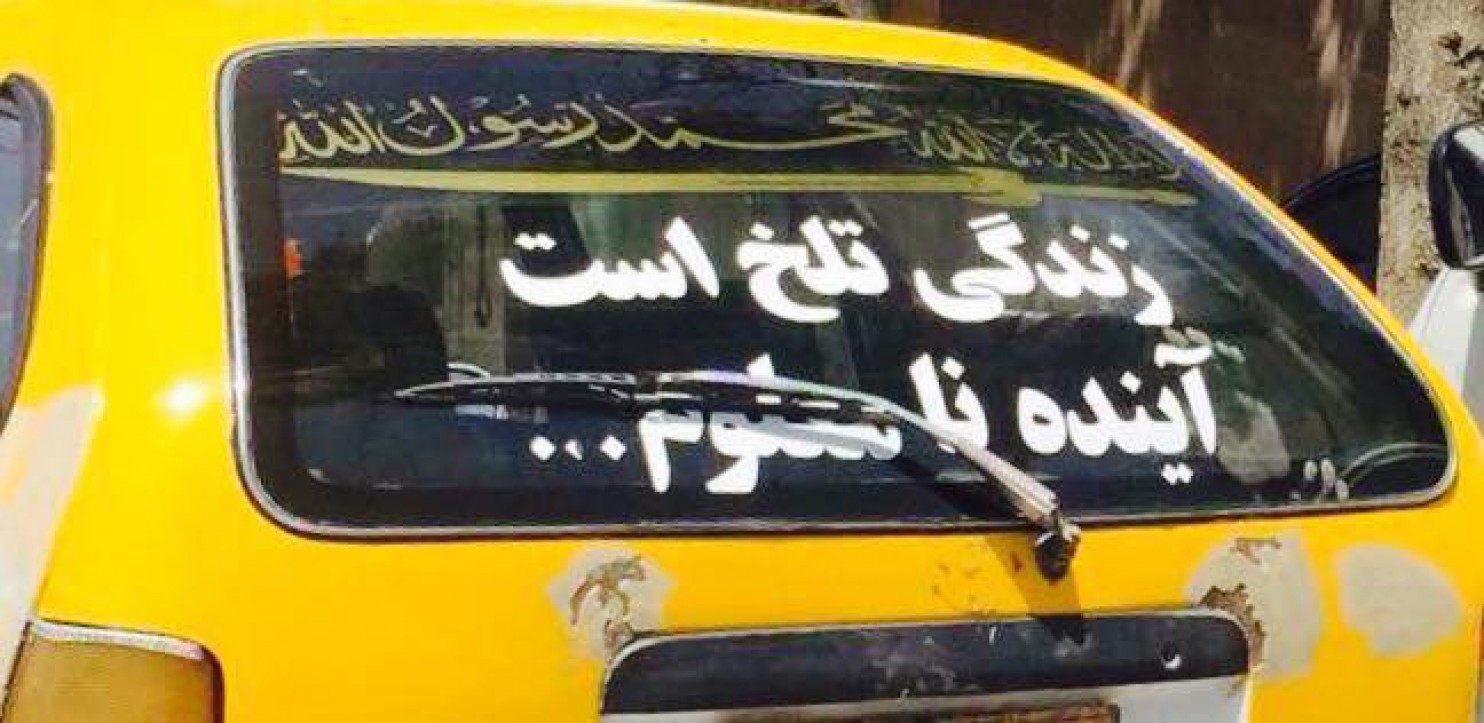 لا اله الا الله محمد رسول الله
زندگی تلخ است
آینده نا معلوم...